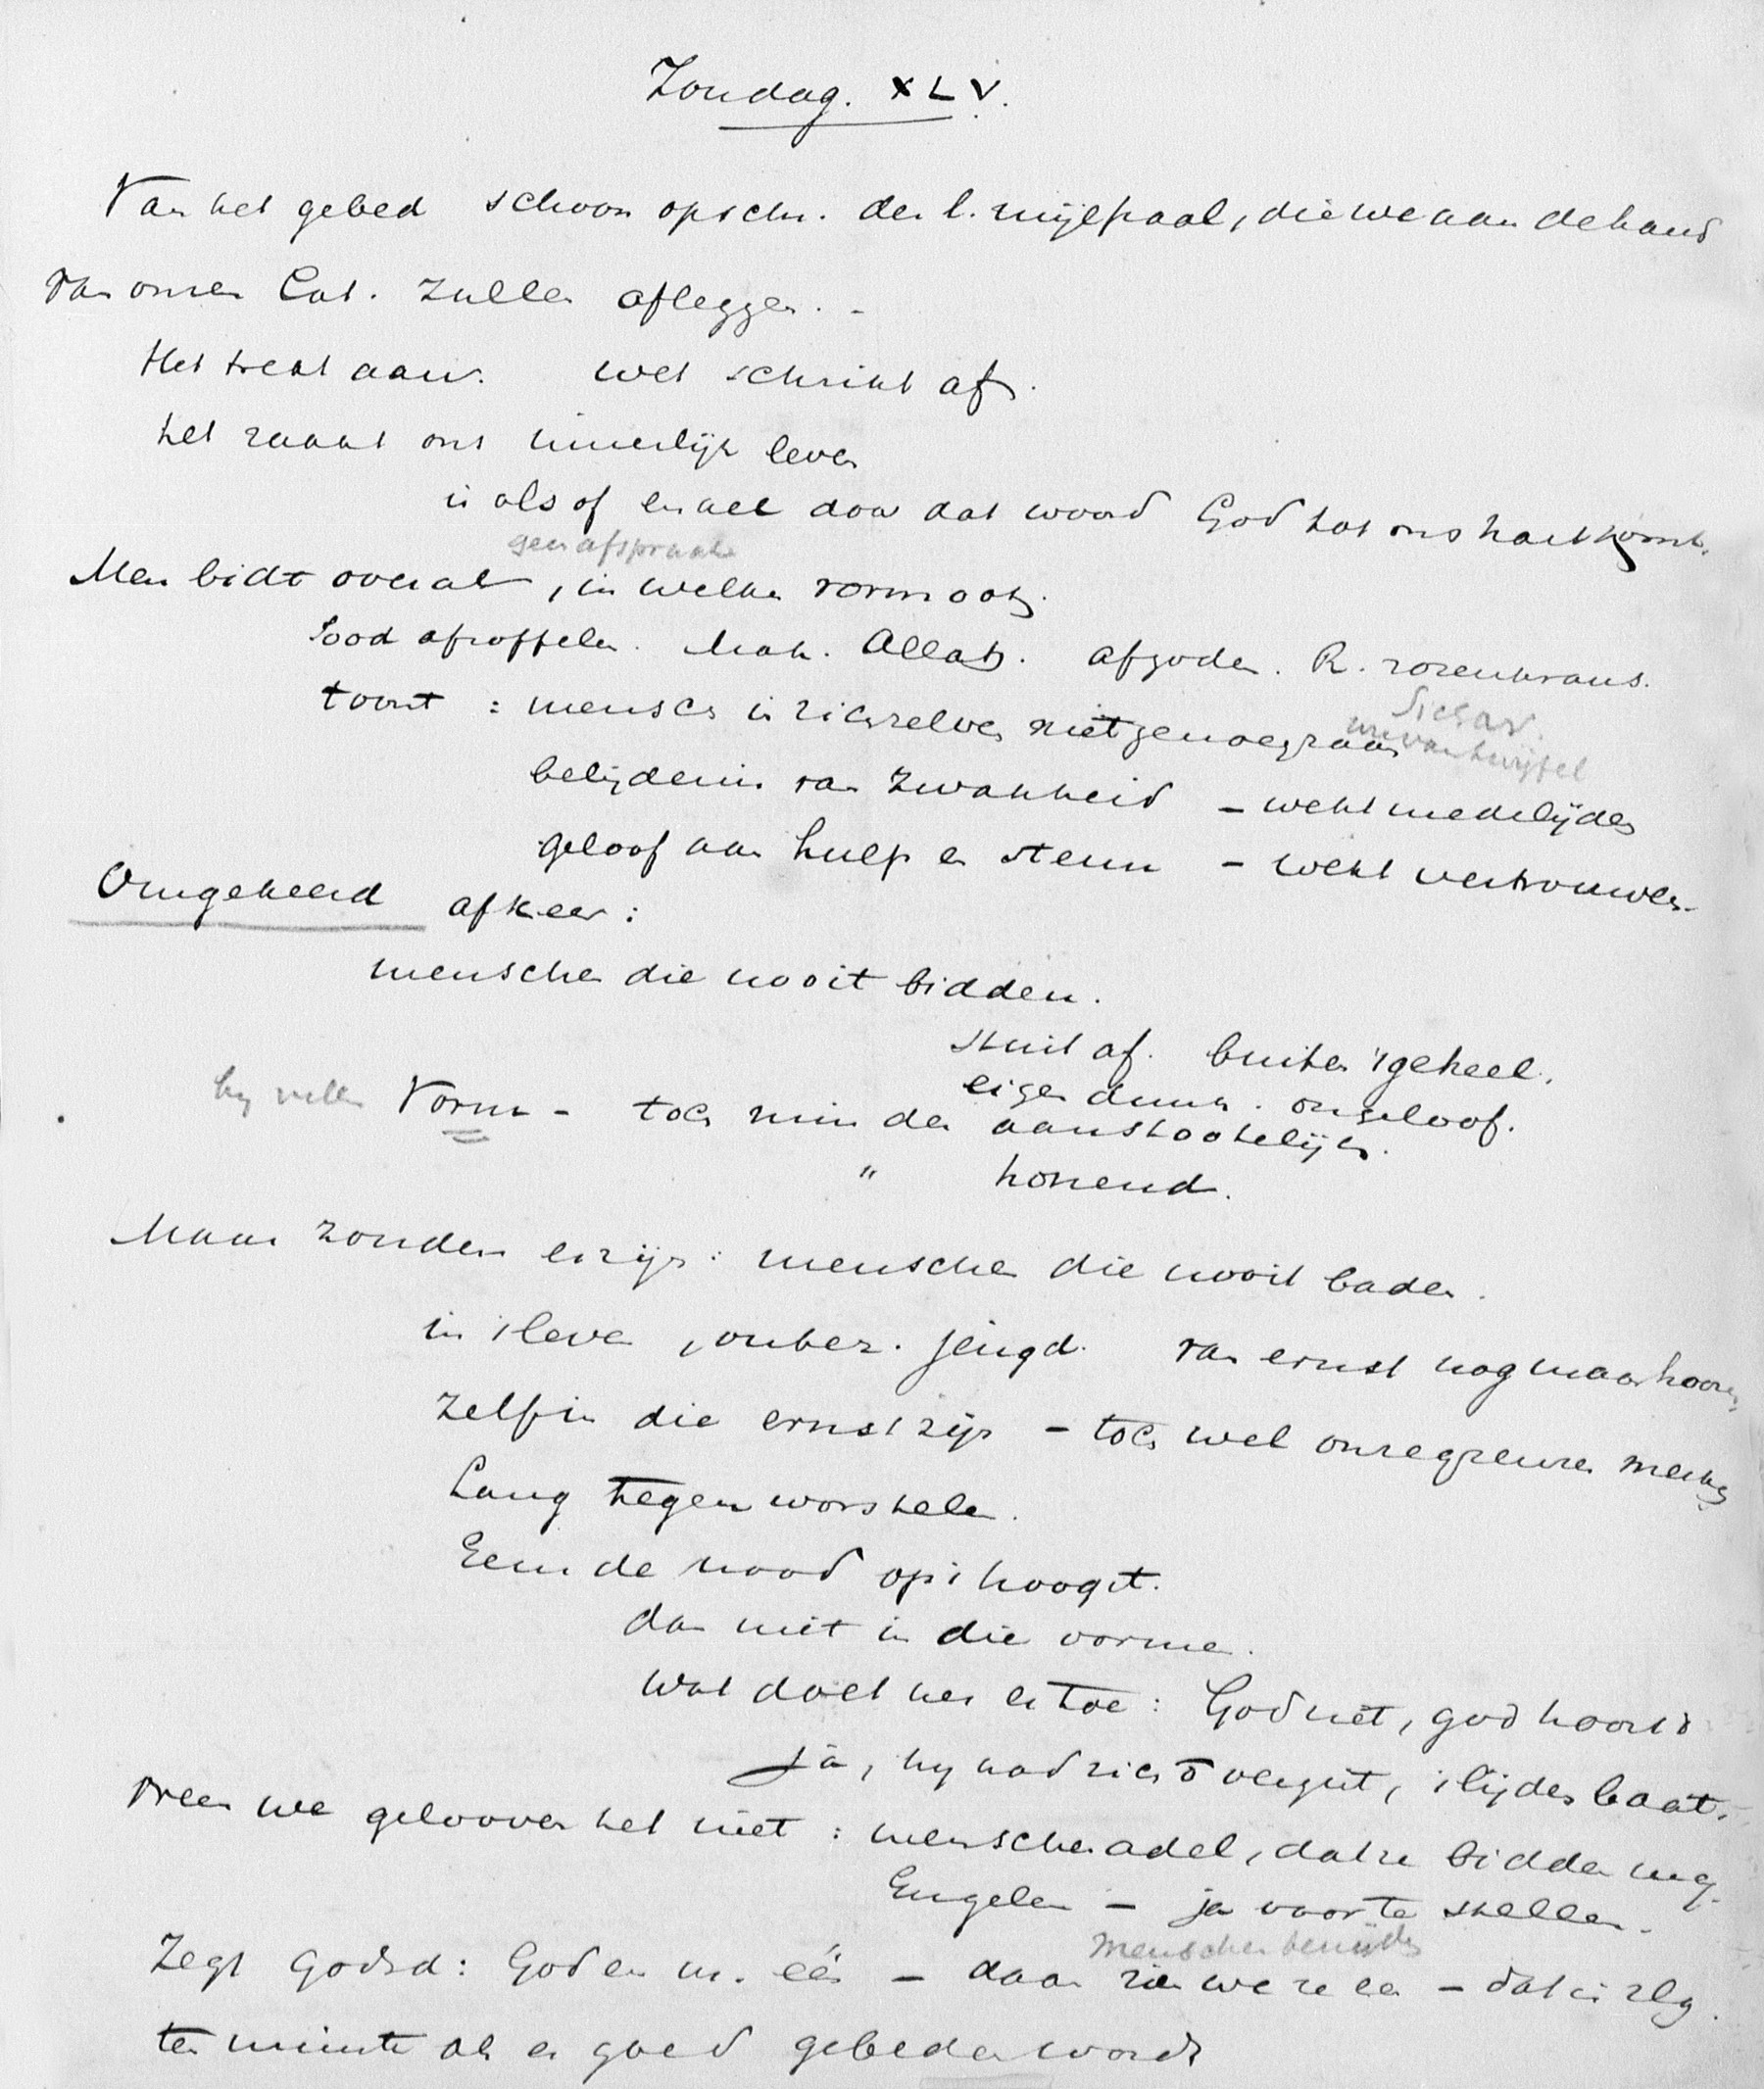 Zondag. XLV.
Van het gebed schoon opschr. der l. mijlpaal, die we aan de hand
van onzen Cat. zullen afleggen. -
Het trekt aan. wet schrikt af.
het raakt ons innerlijk leven
is alsof enkel door dat woord God tot ons hart komt.
geen afspraak
Men bidt overal, in welken vorm ook.
Jood afroffelen. Moh. Allah. afgoden. R. rozenkrans.
toont : mensch in zichzelven niet genoegzaam
belijdenis van zwakheid - wekt medelijden
geloof aan hulp en steun - wekt vertrouwen.
Omgekeerd afkeer :
menschen die nooit bidden.
stuit af. buiten 't geheel.
eigendunk. ongeloof.
by velen Vorm - toch minder aanstootelijk.
" honend.
Maar zouden er zijn : menschen die nooit baden.
in 't leven, onbez. jeugd. van ernst nog maar hooren
Zelfs in die ernst zijn - toch wel onregeg
Lang tegen worstelen.
Eens de nood op 't hoogst.
dan niet in die vormen.
Wat doet het er toe : God niet, god hoort
ja, hy had zich vergist, 't lijden baat.
Neen we gelooven het niet : menschenadel, dat ze bidden mag.
Engelen - ja voor te stellen.
menschen
Zegt Godsd : God en m. één - daar zien we ze een - dat is zlg.
ten minste als er goed gebeden wordt